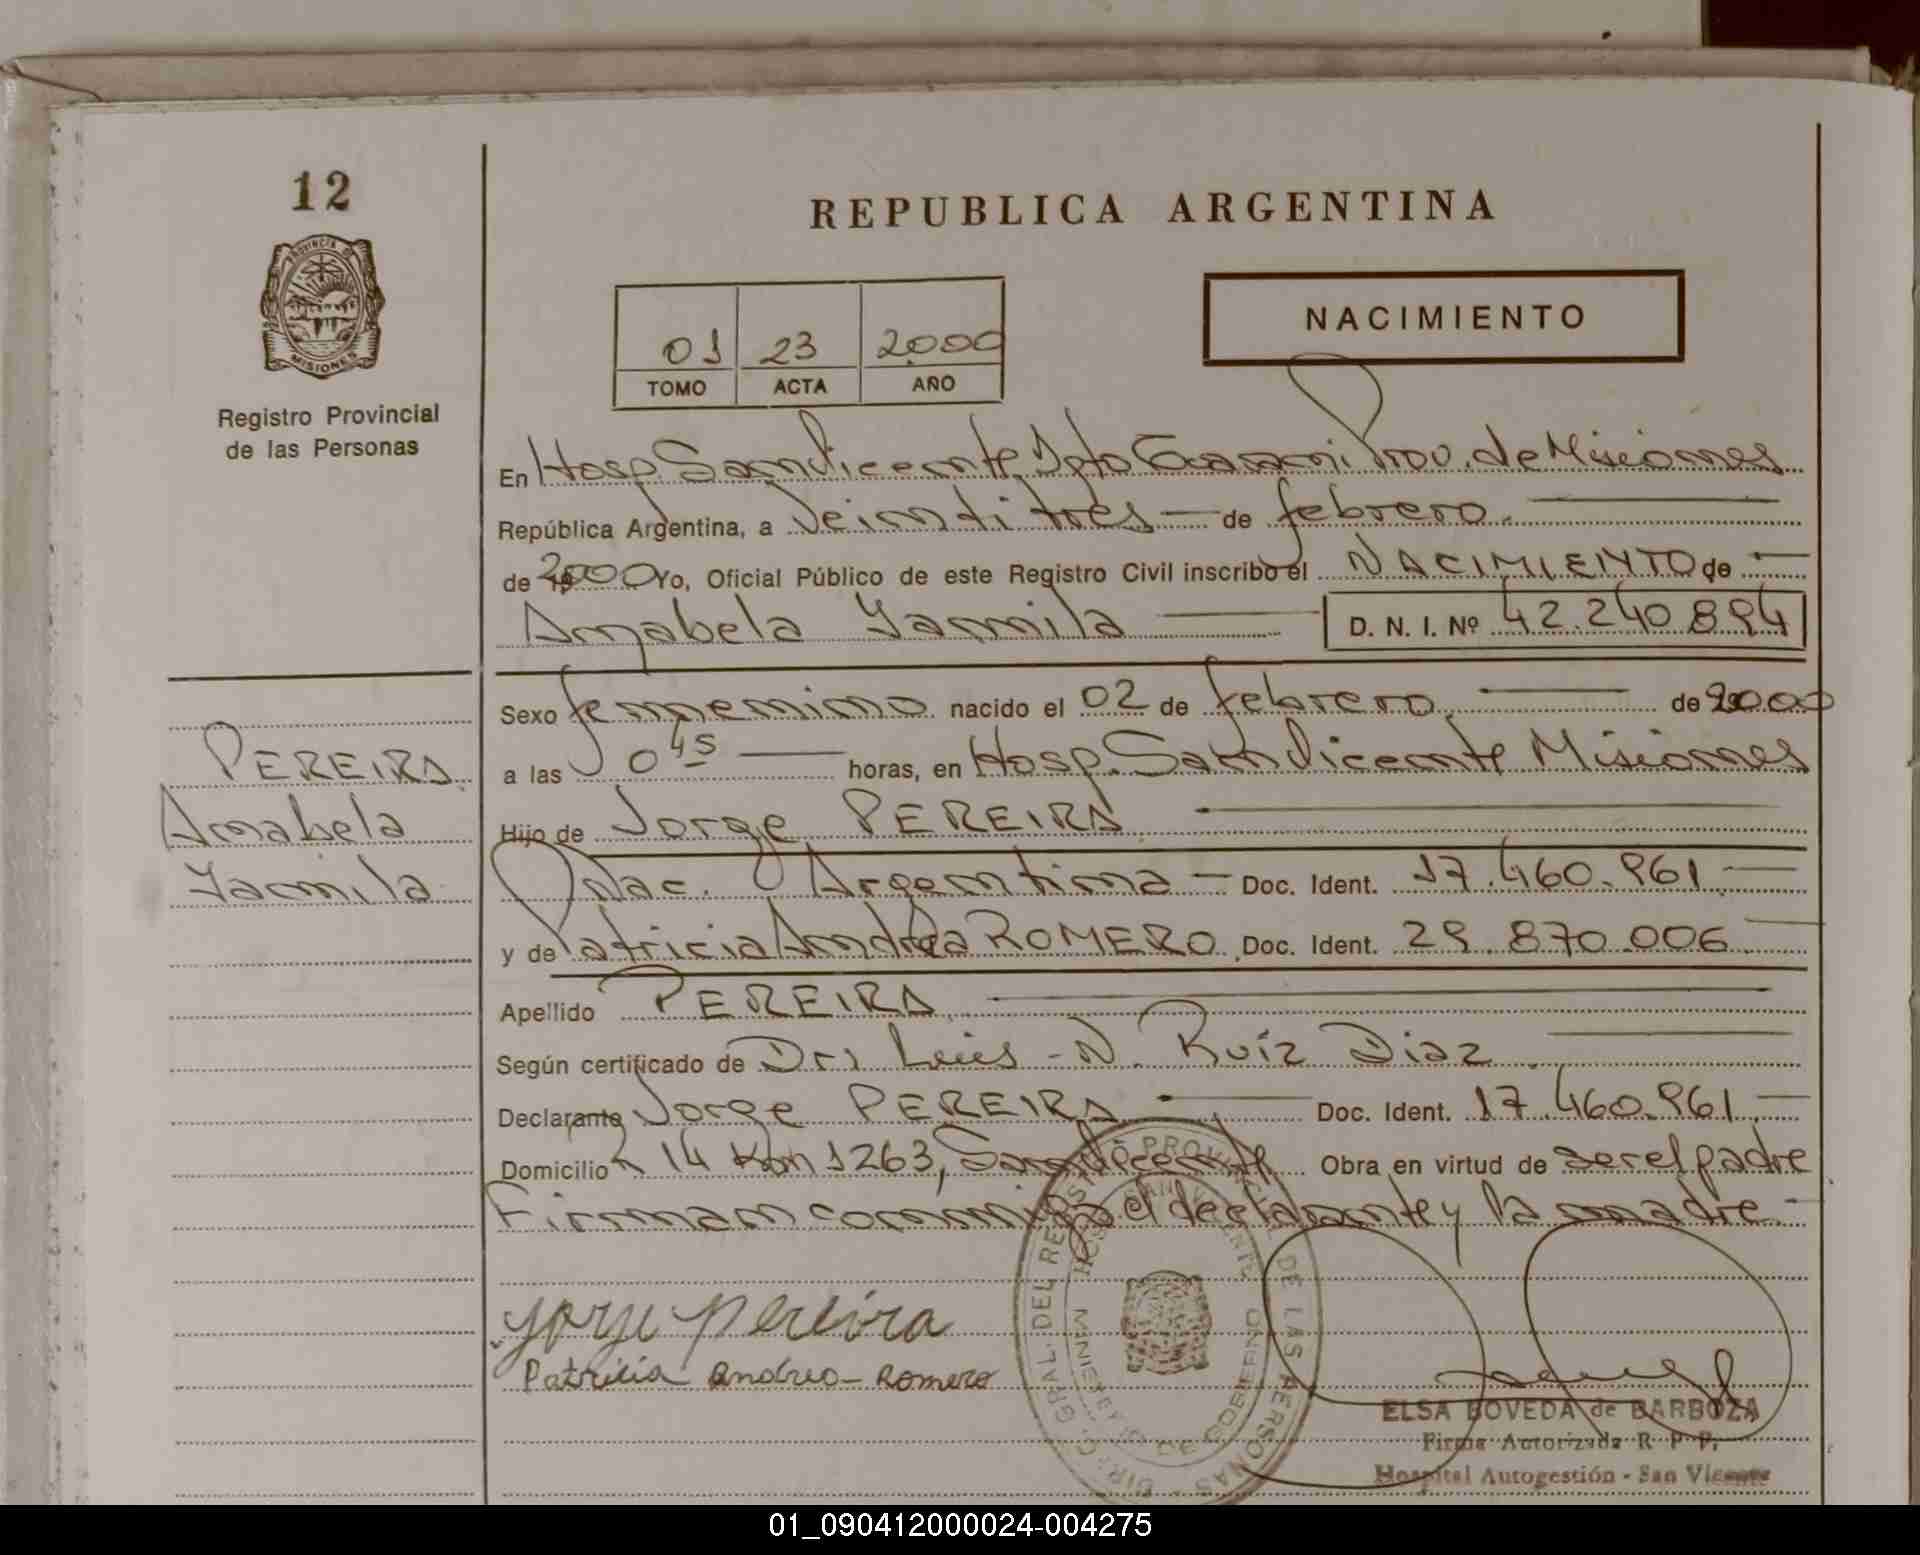 12
PROVINCIA DE
MISIONES
Registro Provincial
de las Personas
REPUBLICA ARGENTINA
NACIMIENTO
01 23 2000
TOMO ACTA AÑO
En Hosp. San Vicente Dpto Guarani Prov. de Misiones
República Argentina, a Veintitrés — de febrero.
de 2000 Yo, Oficial Público de este Registro Civil inscribo el NACIMIENTO de
Anabela Yamila D. N. I. Nº 42.240.894
Sexo femenino nacido el 02 de febrero de 2000
a las 0 45 horas, en Hosp. San Vicente Misiones
Hijo de Jorge PEREIRA
Nac. Argentina — Doc. Ident. 17.460.961
y de Patricia Andrea ROMERO Doc. Ident. 29.870.006
Apellido PEREIRA
Según certificado de Dr. Luis N. Ruíz Diaz
Declarante Jorge PEREIRA Doc. Ident. 17.460.961
Domicilio R 14 Km 1263, San Vicente Obra en virtud de ser el padre
Firman conmigo el declarante y la madre
PEREIRA
Anabela
Yamila
Jorge Pereira
Patricia Andrea Romero
DIREC. GRAL. DEL REGISTRO PROVINCIAL DE LAS PERSONAS
HOSP. SAN VICENTE
MINISTERIO DE GOBIERNO
ELSA BOVEDA de BARBOZA
Firma Autorizada R. P. P.
Hospital Autogestión - San Vicente
01_090412000024-004275